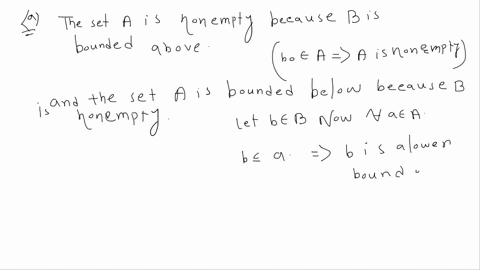 (a) The set A is nonempty because B is
bounded above.
(b0 ∈ A => A is nonempty)
and the set A is bounded below because B
is nonempty.
Let b∈B Now ∀ a∈A.
b ≤ a. => b is a lower
bound.